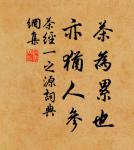 茶為累也
亦猶人參
茶經一之源詞典
網集